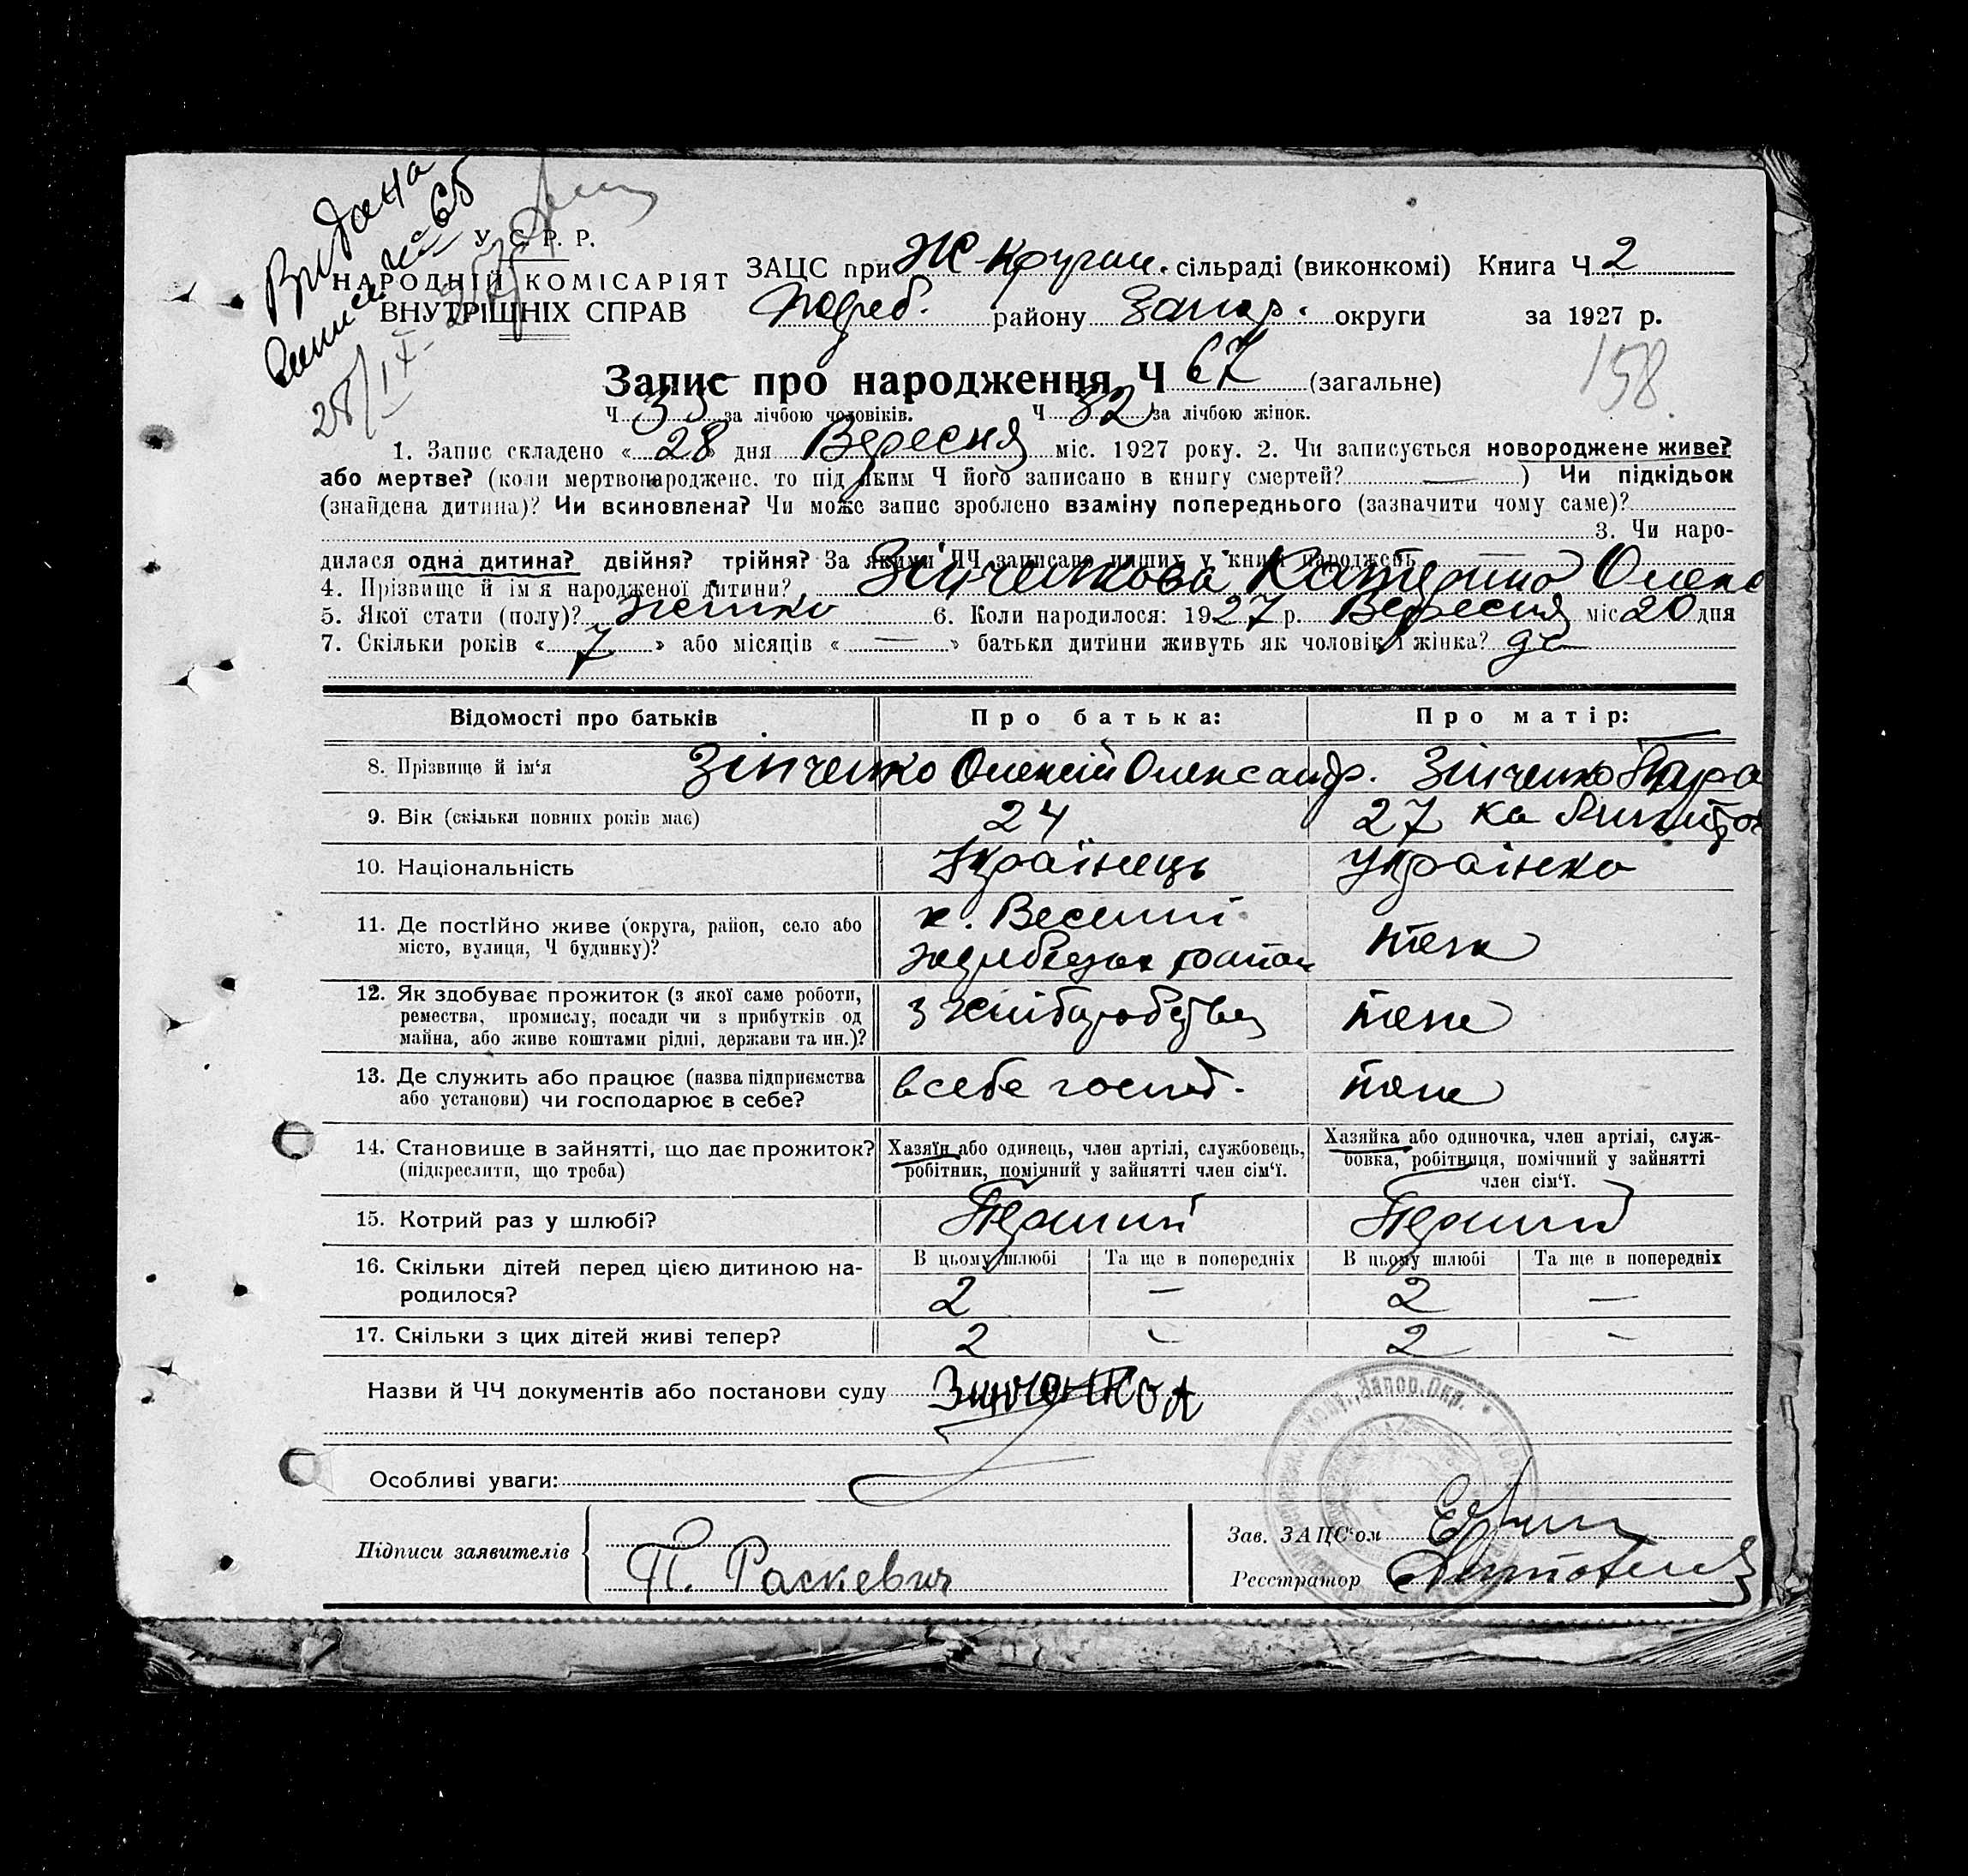 Видана
виписка № 65
28/IX-27
У. С. Р. Р.
НАРОДНІЙ КОМІСАРІЯТ
ВНУТРІШНІХ СПРАВ
ЗАЦС при сільраді (виконкомі) Книга Ч 2
району Запор. округи за 1927 р.
158.
Запис про народження Ч 67 (загальне)
Ч 35 за лічбою чоловіків. Ч 32 за лічбою жінок.
1. Запис складено « 28 » дня Вересня міс. 1927 року. 2. Чи записується новороджене живе?
або мертве? (коли мертвонароджене, то під яким Ч його записано в книгу смертей? — ) Чи підкідьок
(знайдена дитина)? Чи всиновлена? Чи може запис зроблено взаміну попереднього (зазначити чому саме)?
3. Чи наро-
дилася одна дитина? двійня? трійня? За якими ЧЧ записано инших у книзі народжень —
4. Прізвище й ім'я народженої дитини? Зінченкова Катерина Олекс
5. Якої стати (полу)? жінка 6. Коли народилося: 1927 р. Вересня міс 20 дня
7. Скільки років « 7 » або місяців « — » батьки дитини живуть як чоловік і жінка? да
Відомості про батьків Про батька: Про матір:
8. Прізвище й ім'я Зінченко Олексій Олександр. Зінченко Пара
9. Вік (скільки повних років має) 24 27 ка
10. Національність Українець Українка
11. Де постійно живе (округа, район, село або
місто, вулиця, Ч будинку)? х. Веселий район тож
12. Як здобуває прожиток (з якої саме роботи,
ремества, промислу, посади чи з прибутків од
майна, або живе коштами рідні, держави та ин.)? з хліборобства тоже
13. Де служить або працює (назва підприємства
або установи) чи господарює в себе? в себе господ. тоже
14. Становище в зайнятті, що дає прожиток?
(підкреслити, що треба)
Хазяїн або одинець, член артілі, службовець,
робітник, помічний у зайнятті член сім'ї.
Хазяйка або одиночка, член артілі, служ-
бовка, робітниця, помічний у зайнятті
член сім'ї.
15. Котрий раз у шлюбі? Перший Перший
16. Скільки дітей перед цією дитиною на-
родилося?
В цьому шлюбі Та ще в попередніх В цьому шлюбі Та ще в попередніх
2 — 2 —
17. Скільки з цих дітей живі тепер? 2 — 2 —
Назви й ЧЧ документів або постанови суду Зинченко А
Особливі уваги:
Підписи заявителів П. Раскевич
Зав. ЗАЦС'ом
Реєстратор
Запор. Окр.